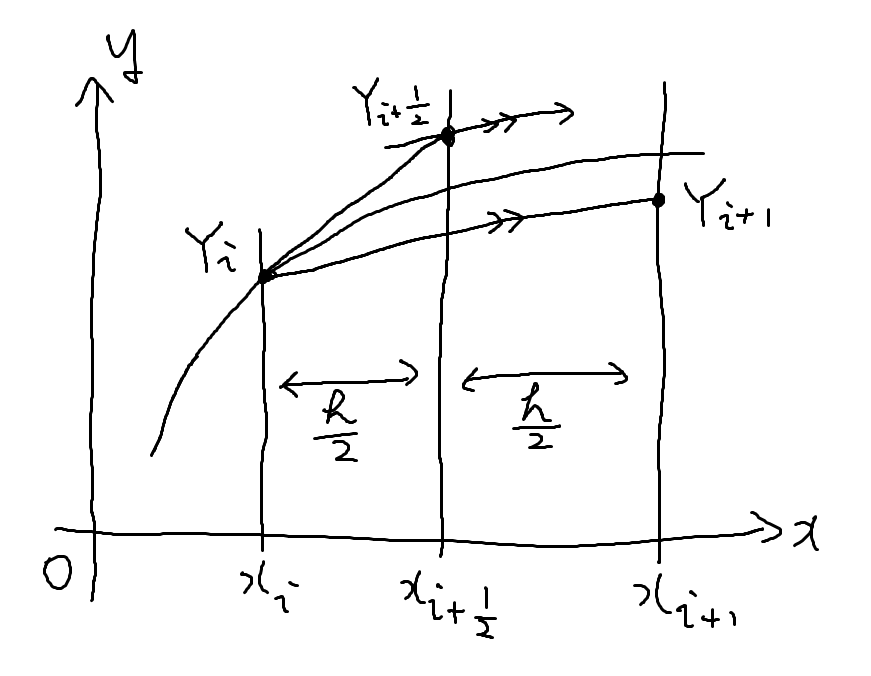 y
Y_{i+\frac{1}{2}}
Y_i
Y_{i+1}
\frac{h}{2}
\frac{h}{2}
O
x_i
x_{i+\frac{1}{2}}
x_{i+1}
x